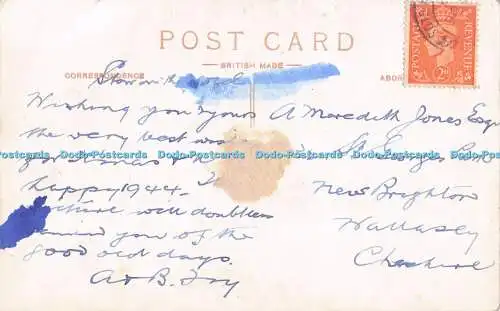 POST CARD
BRITISH MADE
CORRESPONDENCE
POSTAGE
REVENUE
Stow on the
Wishing you & yours
the very best
happy 1944.
picture will doubtless
remind you of the
good old days.
A & B.
A Meredith Jones Esq
St
New Brighton
Wallasey
Cheshire
Dodo-Postcards Dodo-Postcards Dodo-Postcards Dodo-Postcards Dodo-Postcards